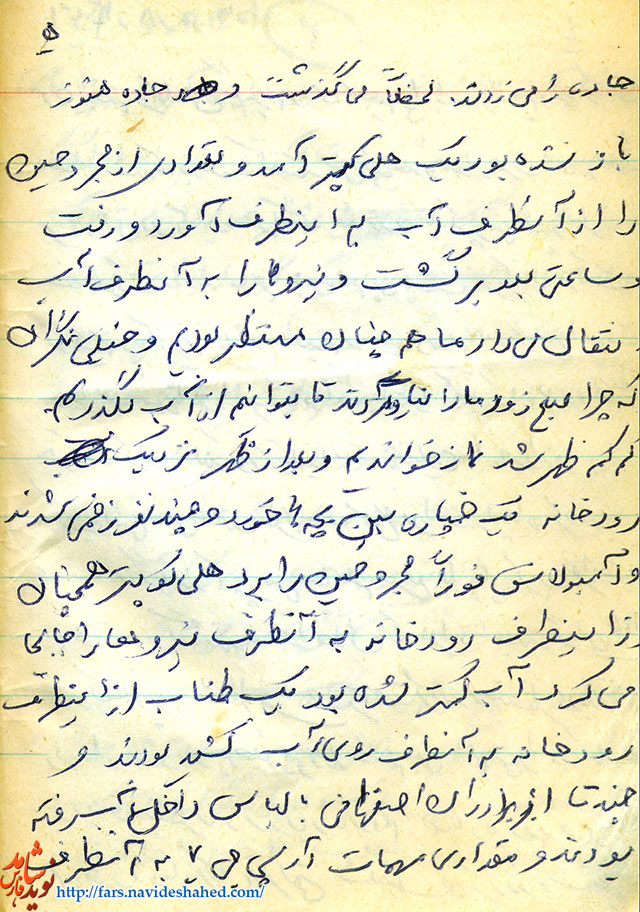 ۵
جاده را می زدند. لحظات می گذشت و جاده هنوز
باز نشده بود یک هلی کپتر آمد و تعدادی از مجروحین
را از آنطرف آب به اینطرف آورد و رفت
و ساعتی بعد برگشت و نیروها را به آنطرف آب
انتقال می داد ما هم چنان منتظر بودیم و خیلی نگران
که چرا صبح زود ما را نکردند تا بتوانیم از آب بگذریم.
کم کم ظهر شد نماز خواندیم و بعد از ظهر نزدیک
رودخانه یک خمپاره بین بچه ها خورد و چند نفر زخمی شدند
و آمبولانس فوراً مجروحین را برد هلی کوپتر همچنان
از اینطرف رودخانه به آنطرف نیروها را جابجا
می کرد آب کمتر شده بود یک طناب از اینطرف
رودخانه به آنطرف روی آب کشیده بودند و
چند تا از برادران اصفهانی با لباس داخل آب رفته
بودند و مقداری مهمات آر پی جی ۷ به آنطرف
نوید شاهد فارس
http://fars.navideshahed.com/